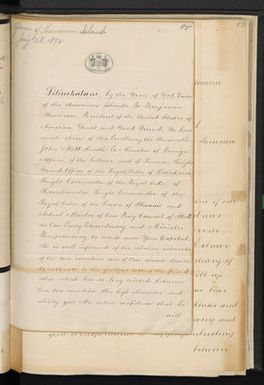 Queen of Hawaiian Islands
85
Liliuokalani, by the Grace of God Queen
of the Hawaiian Islands To Benjamin
Harrison, President of the United States of
America, Great and Good Friend, We have
made choice of His Excellency the Honorable
John Mott Smith, Ex Minister of Foreign
Affairs, of the Interior and of Finance, Knight
Grand Officer of the Royal Order of Kalakaua,
Knight Commander of the Royal Order of
Kamehameha, Knight Commander of the
Royal Order of the Crown of Hawaii and
Actual Member of Our Privy Council of State
as Our Envoy Extraordinary and Minister
Plenipotentiary to reside near Your Capital.
He is well informed of the relative interests
of the two countries and of Our sincere desire
to cultivate to the fullest extent the friend
ship which has so long existed between
Our two countries His high character and
ability give Us entire confidence that he
will
America
up
and
and
between